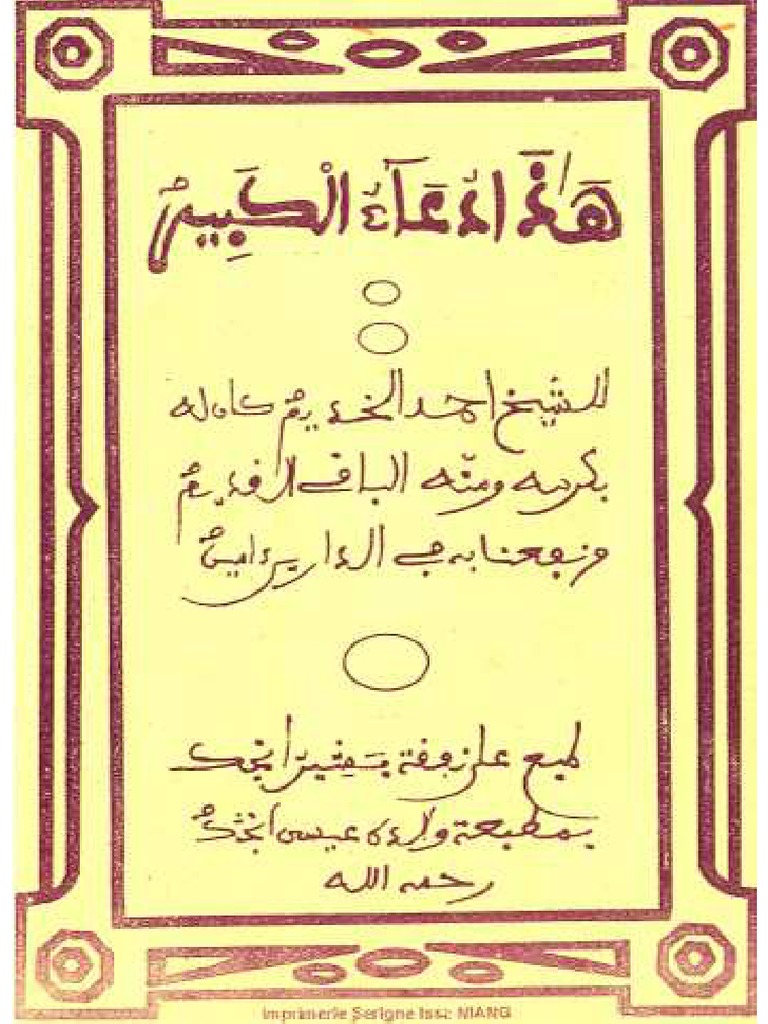 هَٰذَا الدُّعَآءُ الْكَبِيرُ
للشيخ احمد الخديم كان له
بكرمه ومنّه الباقي القديم
ونفعنا به في الدارين ءامين
طبع على نفقة بشير انجك
بمطبعة والده عيسى انجك
رحمه الله
Imprimerie Serigne Issa NIANG